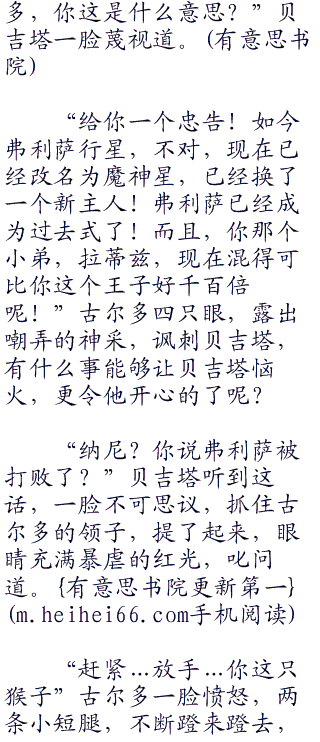 多，你这是什么意思？”贝
吉塔一脸蔑视道。(有意思书
院)
“给你一个忠告！如今
弗利萨行星，不对，现在已
经改名为魔神星，已经换了
一个新主人！弗利萨已经成
为过去式了！而且，你那个
小弟，拉蒂兹，现在混得可
比你这个王子好千百倍
呢！”古尔多四只眼，露出
嘲弄的神采，讽刺贝吉塔，
有什么事能够让贝吉塔恼
火，更令他开心的了呢？
“纳尼？你说弗利萨被
打败了？”贝吉塔听到这
话，一脸不可思议，抓住古
尔多的领子，提了起来，眼
睛充满暴虐的红光，叱问
道。{有意思书院更新第一}
(m.heihei66.com手机阅读)
“赶紧…放手…你这只
猴子”古尔多一脸愤怒，两
条小短腿，不断蹬来蹬去，